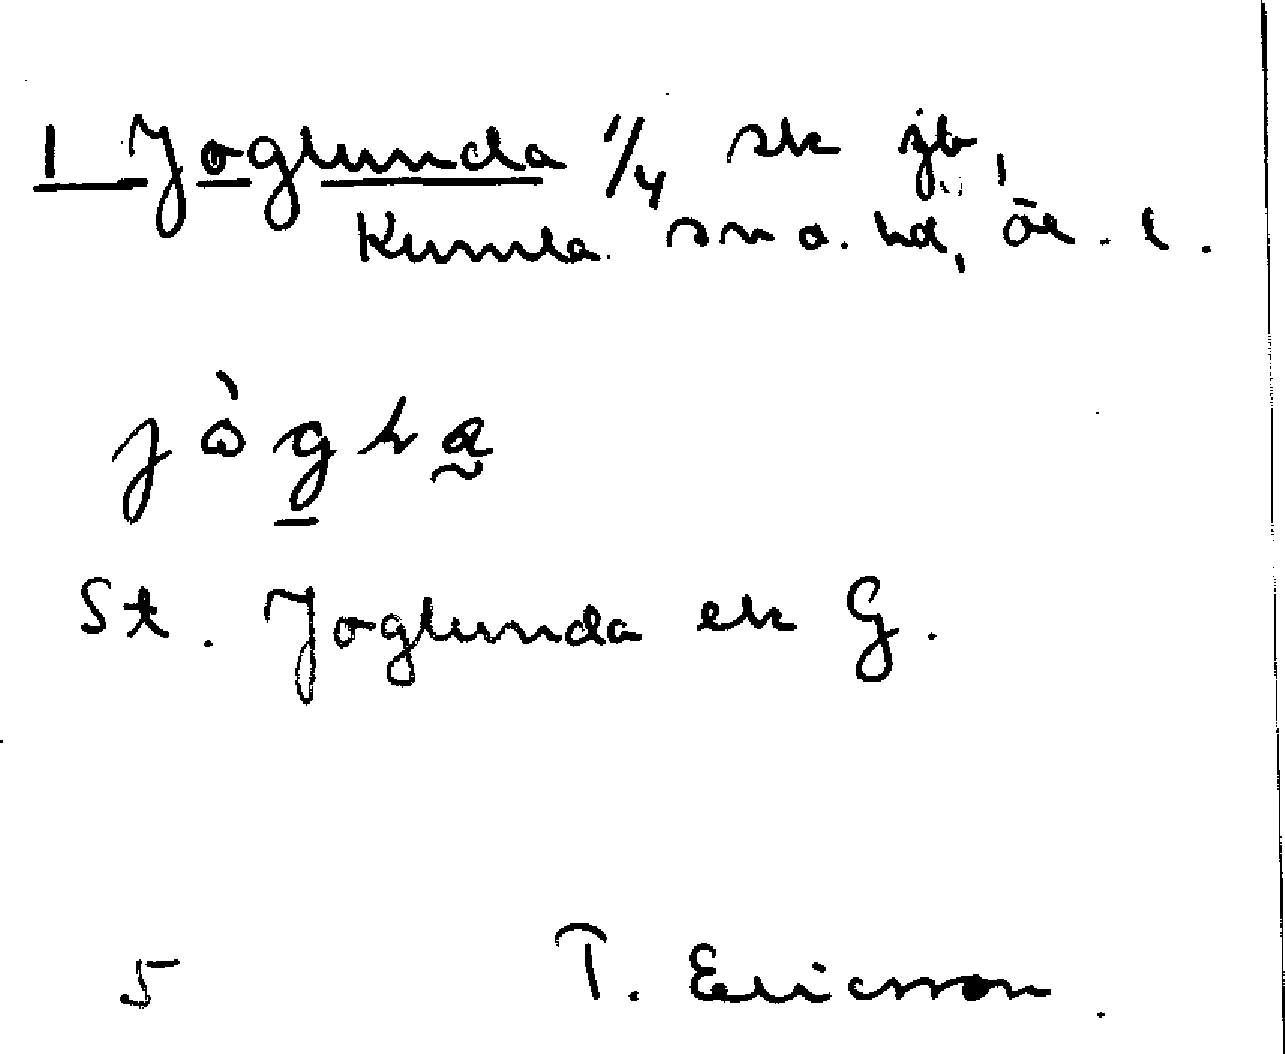 1 Joglunda 1/4 sk jb,
Kumla sn o. hd, Ör. l.
jògla
St. Joglunda ek G.
5 T. Ericsson